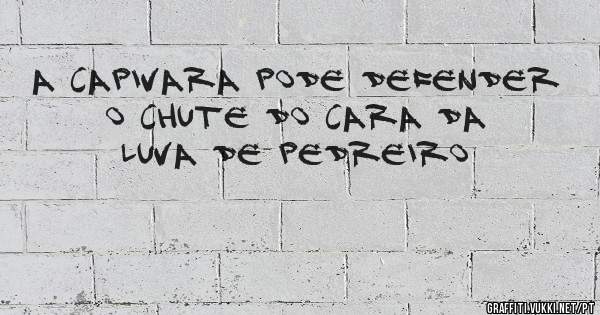 A CAPIVARA PODE DEFENDER
O CHUTE DO CARA DA
LUVA DE PEDREIRO
GRAFFITI.VUKKI.NET/PT